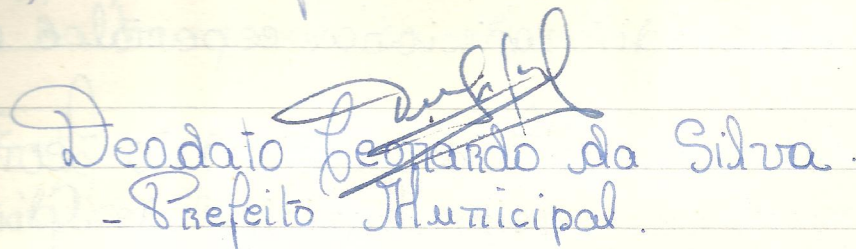 Deodato Leonardo da Silva.
- Prefeito Municipal.